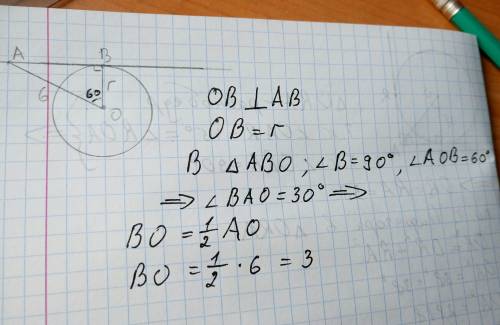 A B
6 60 r
O
OB ⊥ AB
OB = r
В △ABO ; ∠B=90°, ∠AOB=60°
⇒ ∠BAO=30° ⇒
BO = 1/2 AO
BO = 1/2 · 6 = 3